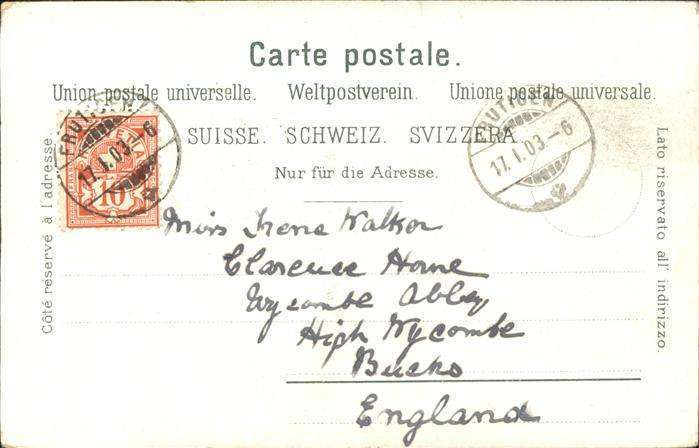 Carte postale.
Union postale universelle. Weltpostverein. Unione postale universale.
SUISSE. SCHWEIZ. SVIZZERA
Nur für die Adresse.
Côté réservé à l'adresse.
Lato riservato all' indirizzo.
FRUTIGEN
17.I.03.-6
10
FRUTIGEN
17.I.03.-6
Miss Irene Walker
Clarence House
Wycombe Abbey
High Wycombe
Bucks
England